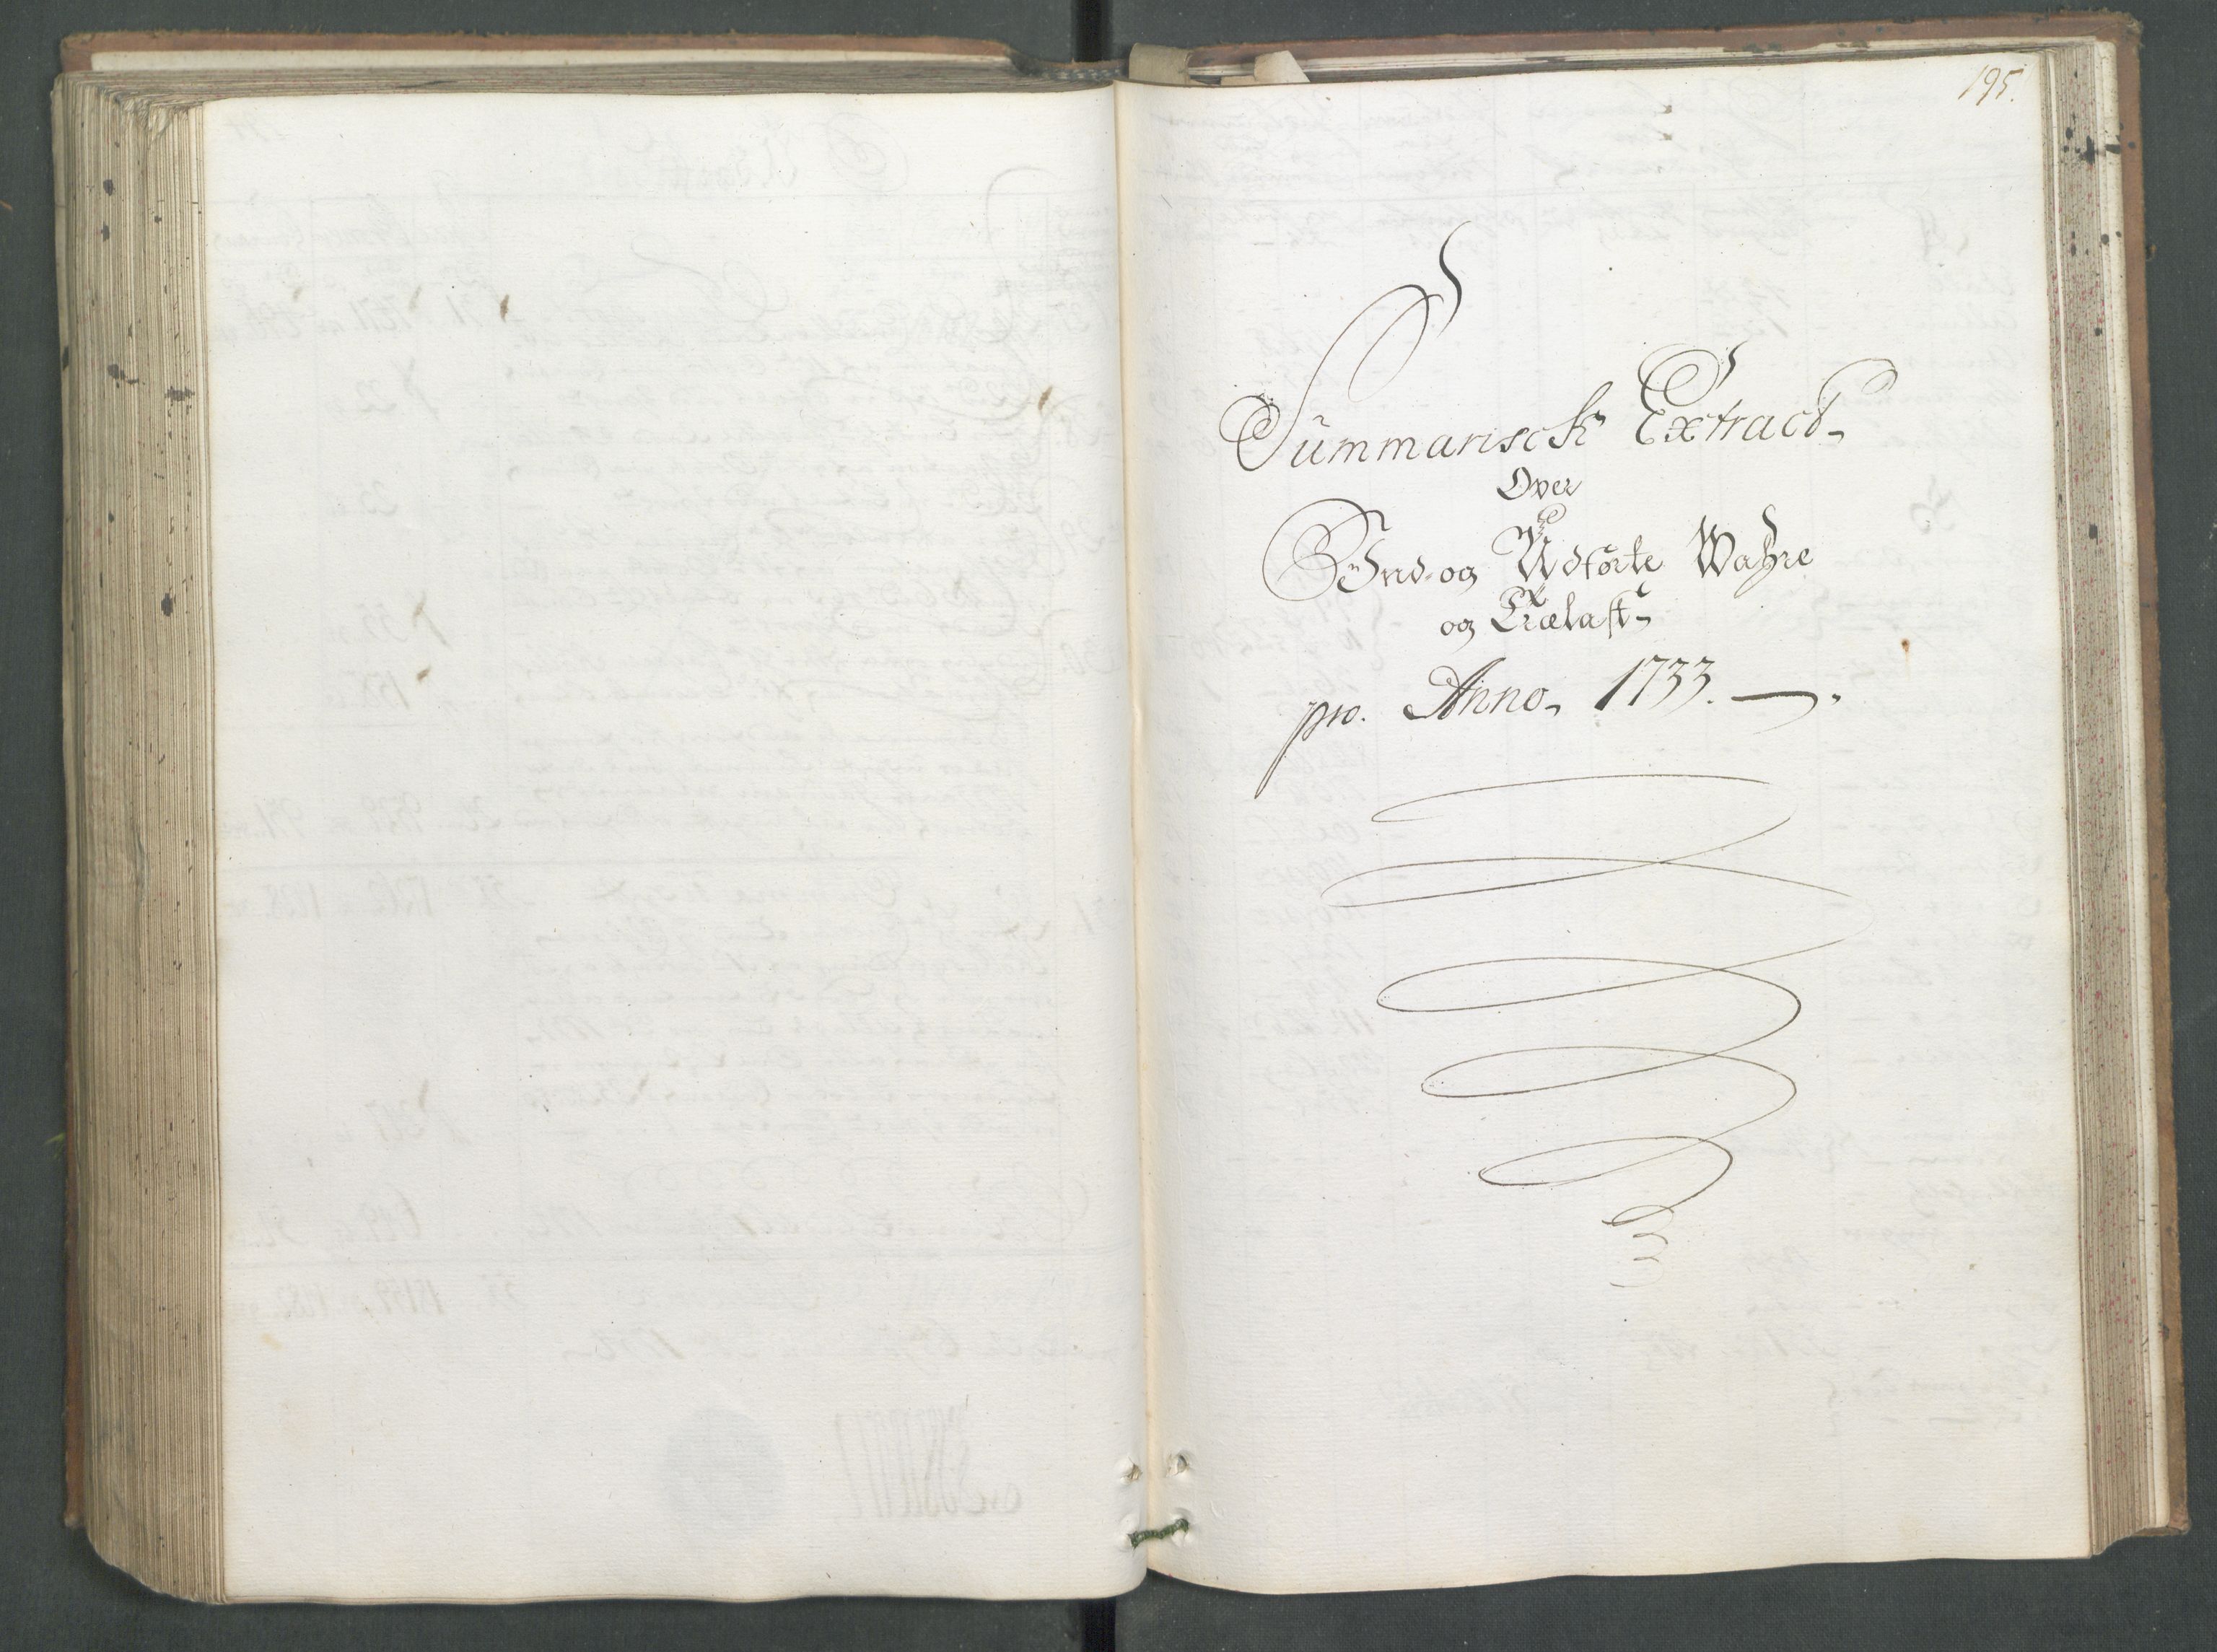 195.
Summarisch Extract
Over
Ind- og Udførte Wahre
og Trælast
pro. Anno. 1733.